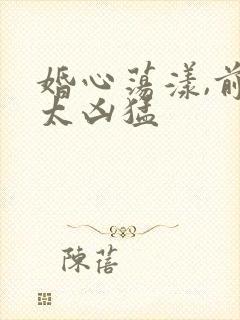 婚心荡漾,前
太凶猛
陳蓓